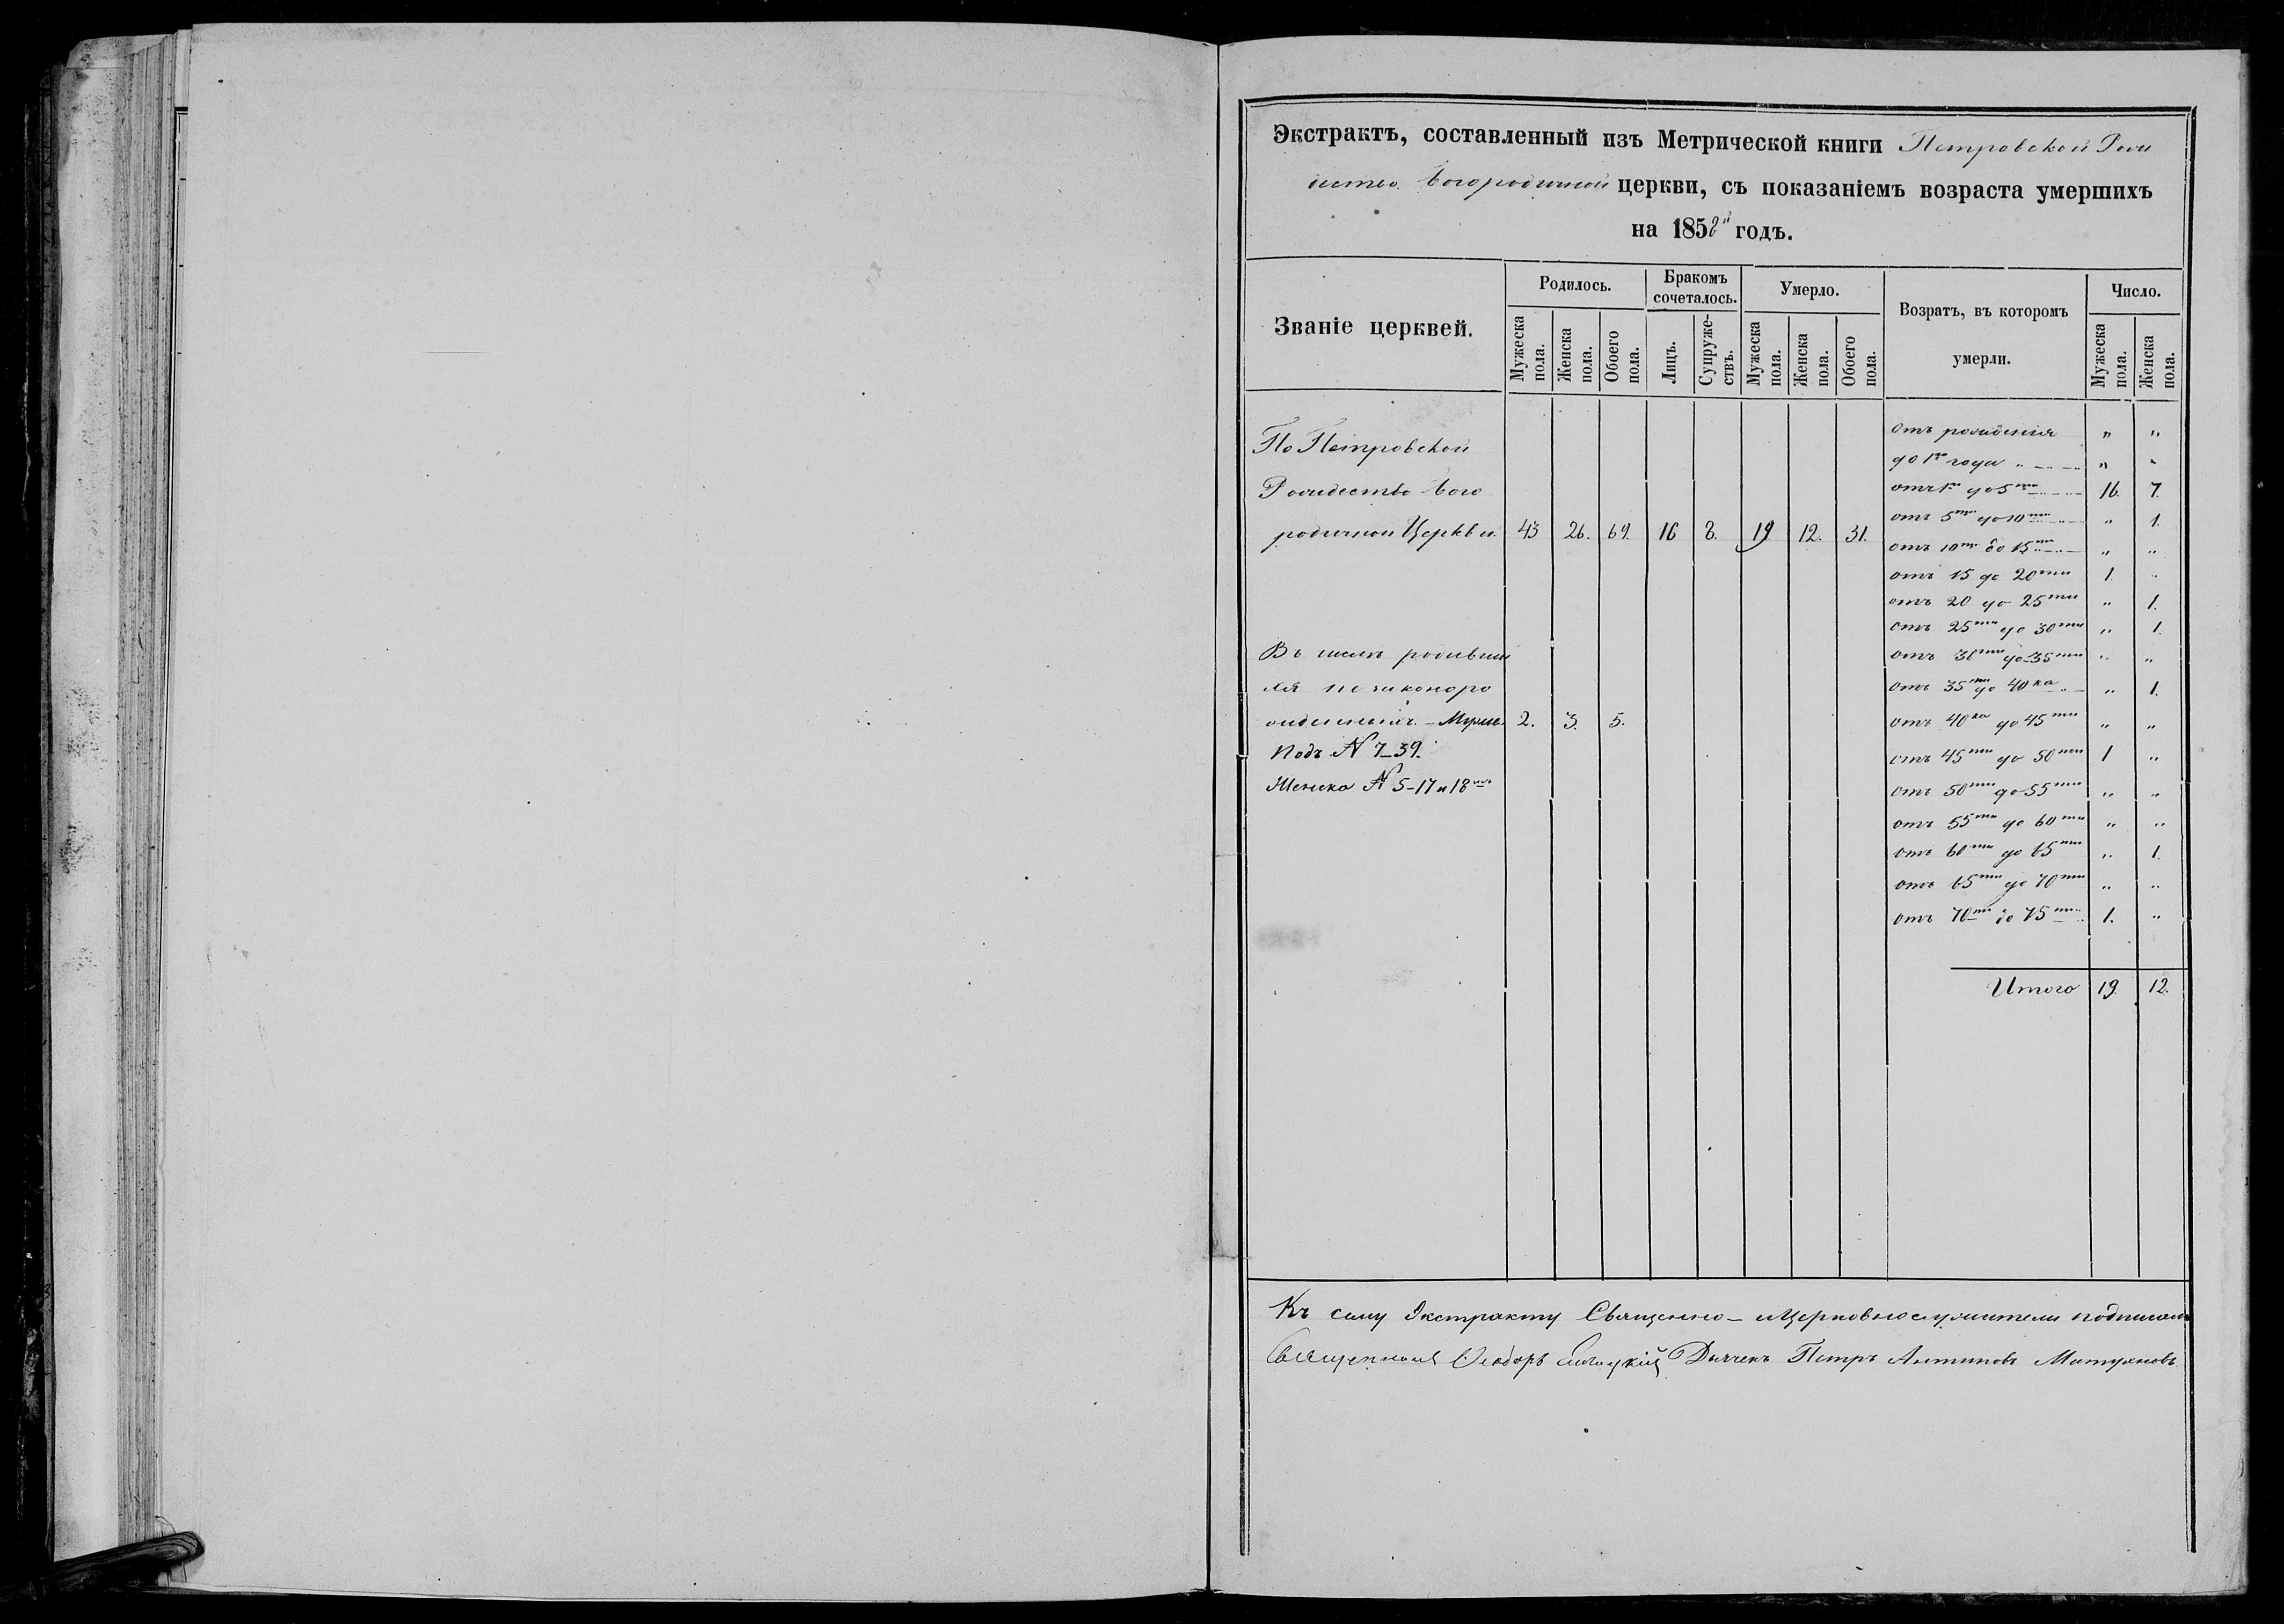 Экстрактъ, составленный изъ Метрической книги Петровской Рож
дество Богородичной церкви, съ показаніемъ возраста умершихъ
на 1858й годъ.
Званіе церквей.
Родилось.
Мужеска пола.
Женска пола.
Обоего пола.
Бракомъ сочеталось.
Лицъ.
Супружествъ.
Умерло.
Мужеска пола.
Женска пола.
Обоего пола.
Возратъ, въ которомъ
умерли.
Число.
Мужеска пола.
Женска пола.
По Петровской
Рождество Бого
родичной Церкви. 43 26. 69. 16 8. 19 12. 31.
Въ числѣ родивши
хся незаконоро
жденныхъ. – Муже. 2. 3. 5.
Подъ № 7–39.
Женска № 5–17 и 18
отъ рожденія „ „
до 1го года „ „
отъ 1го до 5ти 16. 7.
отъ 5ти до 10ти „ 1.
отъ 10ти до 15ти „ „
отъ 15 до 20ти 1. „
отъ 20 до 25ти „ 1.
отъ 25ти до 30ти „ 1.
отъ 30ти до 35ти „ „
отъ 35ти до 40ка „ 1.
отъ 40ка до 45ти „ „
отъ 45ти до 50ти 1 „
отъ 50ти до 55ти „ „
отъ 55ти до 60ти „ „
отъ 60ти до 65ти „ 1.
отъ 65ти до 70ти „ „
отъ 70ти до 75ти 1. „
Итого 19. 12.
Къ сему Экстракту Священно–Церковнослужители подписали
Священникъ Ѳеодоръ Дьячекъ Петръ Антиповъ